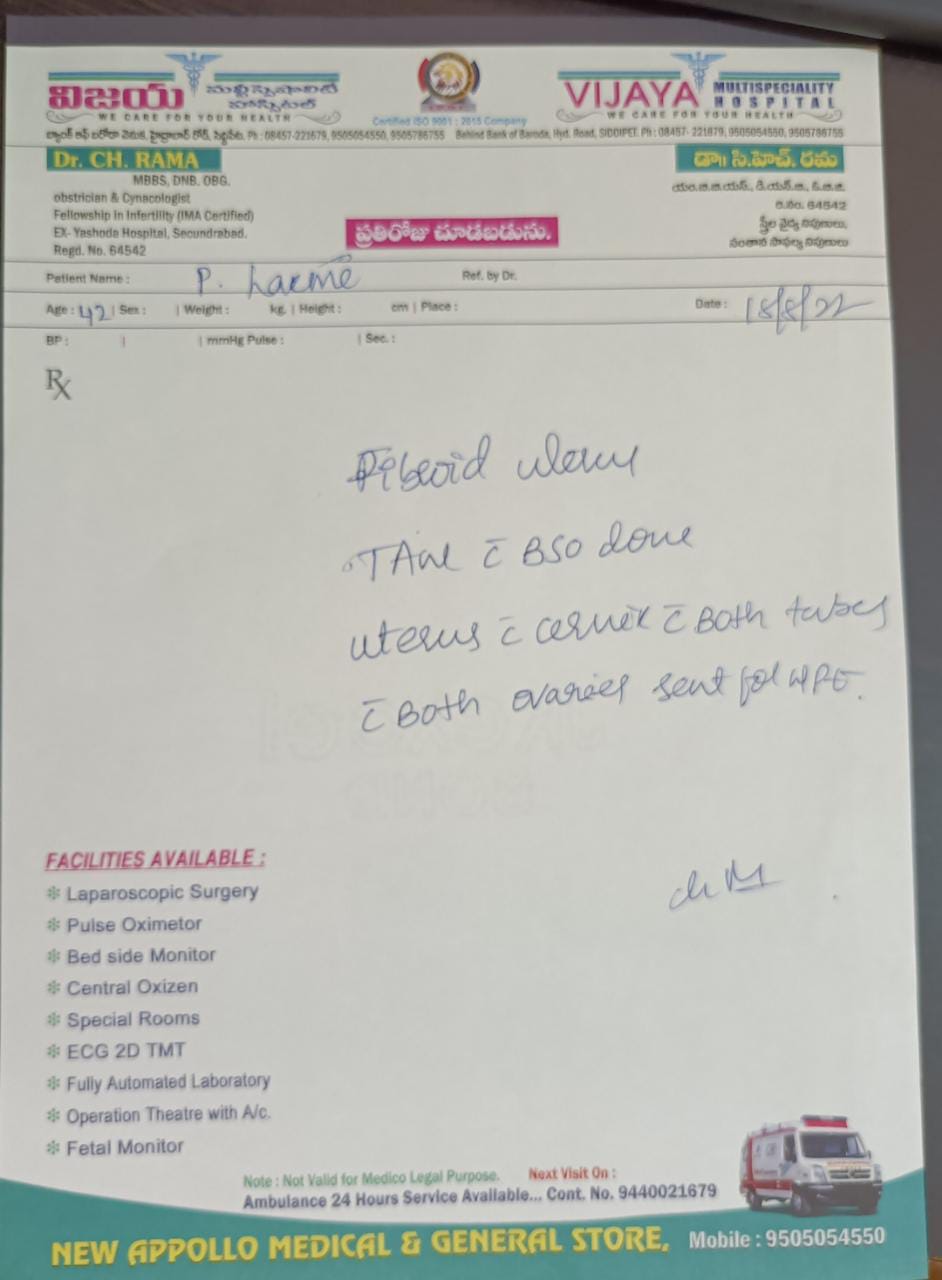 విజయ మల్టిస్పెషాలిటీ హాస్పిటల్
WE CARE FOR YOUR HEALTH
Certified ISO 9001 : 2015 Company
VIJAYA MULTISPECIALITY HOSPITAL
WE CARE FOR YOUR HEALTH
బ్యాంక్ ఆఫ్ బరోడా వెనుక, హైద్రాబాద్ రోడ్, సిద్దిపేట. Ph : 08457-221679, 9505054550, 9505786755 Behind Bank of Baroda, Hyd. Road, SIDDIPET. Ph : 08457- 221679, 9505054550, 9505786755
Dr. CH. RAMA
MBBS, DNB. OBG.
obstrician & Gynacologist
Fellowship in Infertility (IMA Certified)
EX- Yashoda Hospital, Secundrabad.
Regd. No. 64542
ప్రతిరోజు చూడబడును.
డా॥ సి.హెచ్. రమ
ఎం.బి.బి.ఎస్., డి.ఎన్.బి., ఓ.బి.జి.
రి.నెం. 64542
స్త్రీల వైద్య నిపుణులు,
సంతాన సాఫల్య నిపుణులు
Patient Name : P. Laxme Ref. by Dr.
Age : 42 | Sex : | Weight : kg. | Height : cm | Place : Date : 18/8/22
BP : | | mmHg Pulse : | Sec. :
Rx
Fibroid uterus
TAH c̄ BSO done
uterus c̄ cervix c̄ Both tubes
c̄ Both ovaries sent for HPE.
FACILITIES AVAILABLE :
❇ Laparoscopic Surgery
❇ Pulse Oximetor
❇ Bed side Monitor
❇ Central Oxizen
❇ Special Rooms
❇ ECG 2D TMT
❇ Fully Automated Laboratory
❇ Operation Theatre with A/c.
❇ Fetal Monitor
Note : Not Valid for Medico Legal Purpose. Next Visit On :
Ambulance 24 Hours Service Available... Cont. No. 9440021679
NEW APPOLLO MEDICAL & GENERAL STORE, Mobile : 9505054550